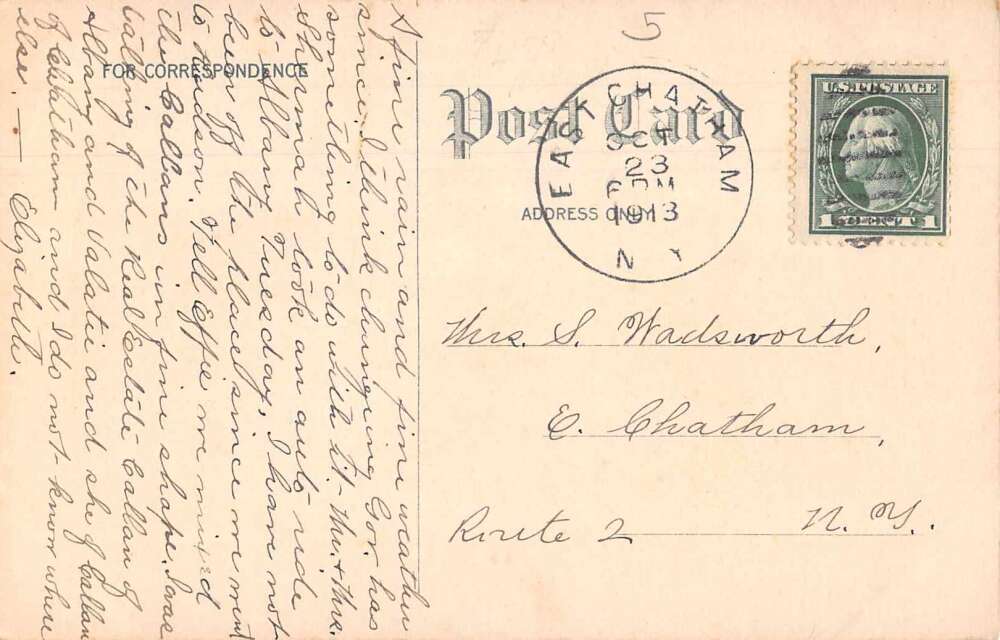 5
FOR CORRESPONDENCE
Post Card
ADDRESS ONLY
EAST CHATHAM
OCT
23
6 PM
1913
N Y
U.S. POSTAGE
1 CENT 1
Mrs. S. Wadsworth,
E. Chatham,
Route 2 N. Y.
A fine rain and fine weather
since. I think changing Gov. has
something to do with it. Mr. & Mrs.
Sherman took an auto ride
to Albany Tuesday. I have not
been off the place since we went
to Hudson. Tell Effie we mixed
the Callans in fine shape. I was
talking of the Real Estate Callan of
Albany and Valatie and she of Callan
of Chatham and I do not know where
else. — Elizabeth.